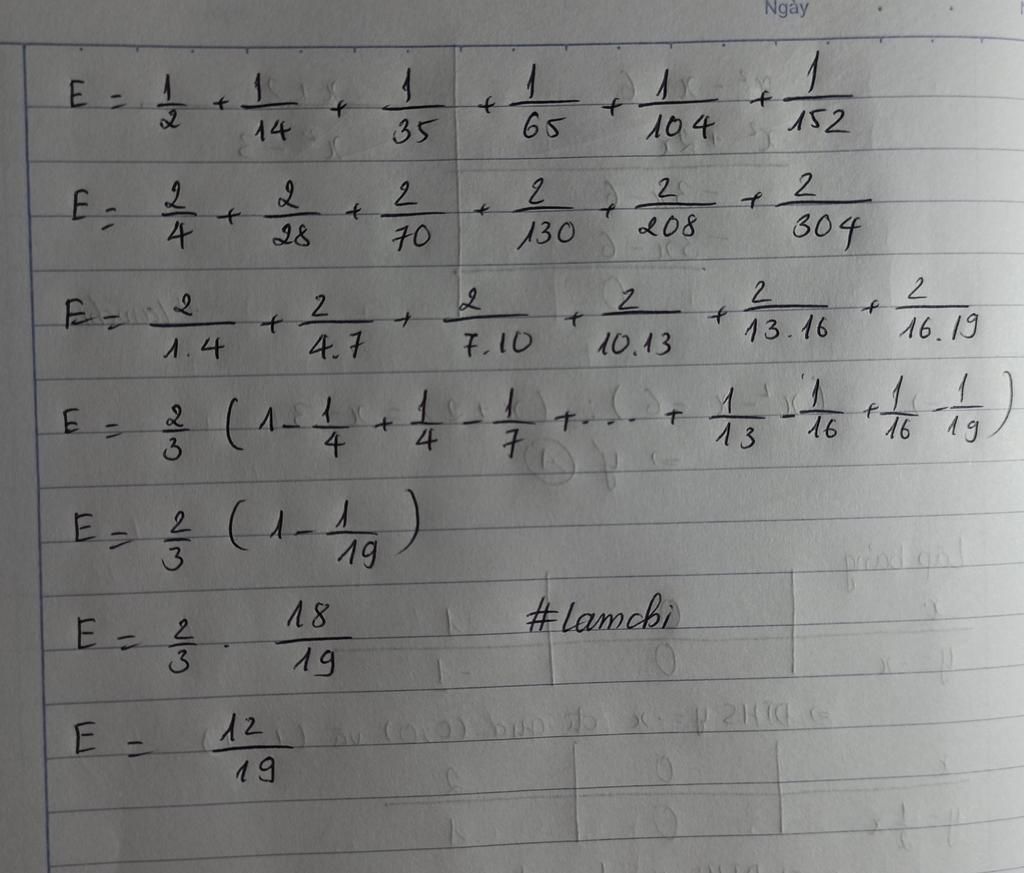 Ngày
E = 1/2 + 1/14 + 1/35 + 1/65 + 1/104 + 1/152
E = 2/4 + 2/28 + 2/70 + 2/130 + 2/208 + 2/304
E = 2/1.4 + 2/4.7 + 2/7.10 + 2/10.13 + 2/13.16 + 2/16.19
E = 2/3 (1 - 1/4 + 1/4 - 1/7 + ... + 1/13 - 1/16 + 1/16 - 1/19)
E = 2/3 (1 - 1/19)
E = 2/3 . 18/19 #lamchi
E = 12/19